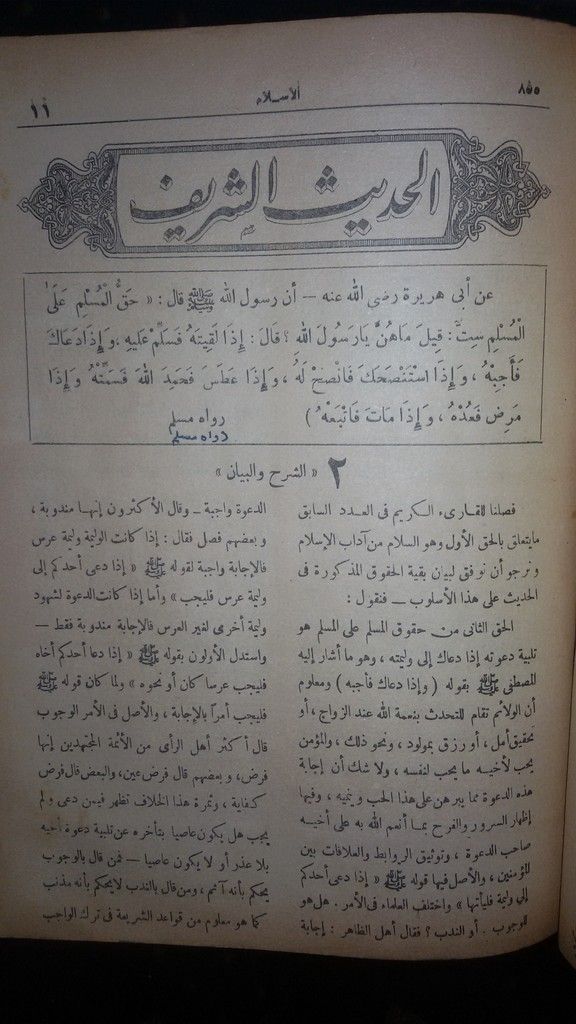 ٨٥٥
الاسلام
١١
الحديث الشريف
عن أبى هريرة رضى الله عنه – أن رسول الله ﷺ قال : « حَقُّ الْمُسْلِمِ عَلَى
الْمُسْلِمِ سِتٌّ : قِيلَ مَاهُنَّ يَارَسُولَ اللهِ ؟ قَالَ : إِذَا لَقِيتَهُ فَسَلِّمْ عَلَيْهِ ، وَإِذَا دَعَاكَ
فَأَجِبْهُ ، وَإِذَا اسْتَنْصَحَكَ فَانْصَحْ لَهُ ، وَإِذَا عَطَسَ فَحَمِدَ اللهَ فَسَمِّتْهُ وَإِذَا
مَرِضَ فَعُدْهُ ، وَإِذَا مَاتَ فَاتْبَعْهُ )
رواه مسلم
رواه مسلم
٢ « الشرح والبيان »
فصلنا للقارىء الكريم فى العدد السابق
مايتعلق بالحق الأول وهو السلام من آداب الإسلام
ونرجو أن نوفق لبيان بقية الحقوق المذكورة فى
الحديث على هذا الأسلوب – فنقول :
الحق الثانى من حقوق المسلم على المسلم هو
تلبية دعوته إذا دعاك إلى وليمته ، وهو ما أشار إليه
المصطفى ﷺ بقوله ( وإذا دعاك فأجبه ) ومعلوم
أن الولائم تقام للتحدث بنعمة الله عند الزواج ، أو
تحقيق أمل ، أو رزق بمولود ، ونحو ذلك ، والمؤمن
يحب لأخيه ما يحب لنفسه ، ولا شك أن إجابة
هذه الدعوة مما يبرهن على هذا الحب وينميه ، وفيها
إظهار السرور والفرح بما أنعم الله به على أخيه
صاحب الدعوة ، وتوثيق الروابط والعلاقات بين
المؤمنين ، والأصل فيها قوله ﷺ « إذا دعى أحدكم
إلى وليمة فليأتها » واختلف العلماء فى الأمر : هل هو
للوجوب . أو الندب ؟ فقال أهل الظاهر : إجابة
الدعوة واجبة – وقال الأكثرون إنها مندوبة ،
وبعضهم فصل فقال : إذا كانت الوليمة وليمة عرس
فالإجابة واجبة لقوله ﷺ « إذا دعى أحدكم إلى
وليمة عرس فليجب » وأما إذا كانت الدعوة لشهود
وليمة أخرى لغير العرس فالإجابة مندوبة فقط –
واستدل الأولون بقوله ﷺ « إذا دعا أحدكم أخاه
فليجب عرسا كان أو نحوه » ولما كان قوله ﷺ
فليجب أمراً بالإجابة ، والأصل فى الأمر الوجوب
قال أكثر أهل الرأى من الأئمة المجتهدين إنها
فرض ، وبعضهم قال فرض عين ، والبعض قال فرض
كفاية ، وثمرة هذا الخلاف تظهر فيمن دعى ولم
يجب هل يكون عاصيا بتأخره عن تلبية دعوة أخيه
بلا عذر أو لا يكون عاصيا – فمن قال بالوجوب
يحكم بأنه آثم ، ومن قال بالندب لايحكم بأنه مذنب
كما هو معلوم من قواعد الشريعة فى ترك الواجب